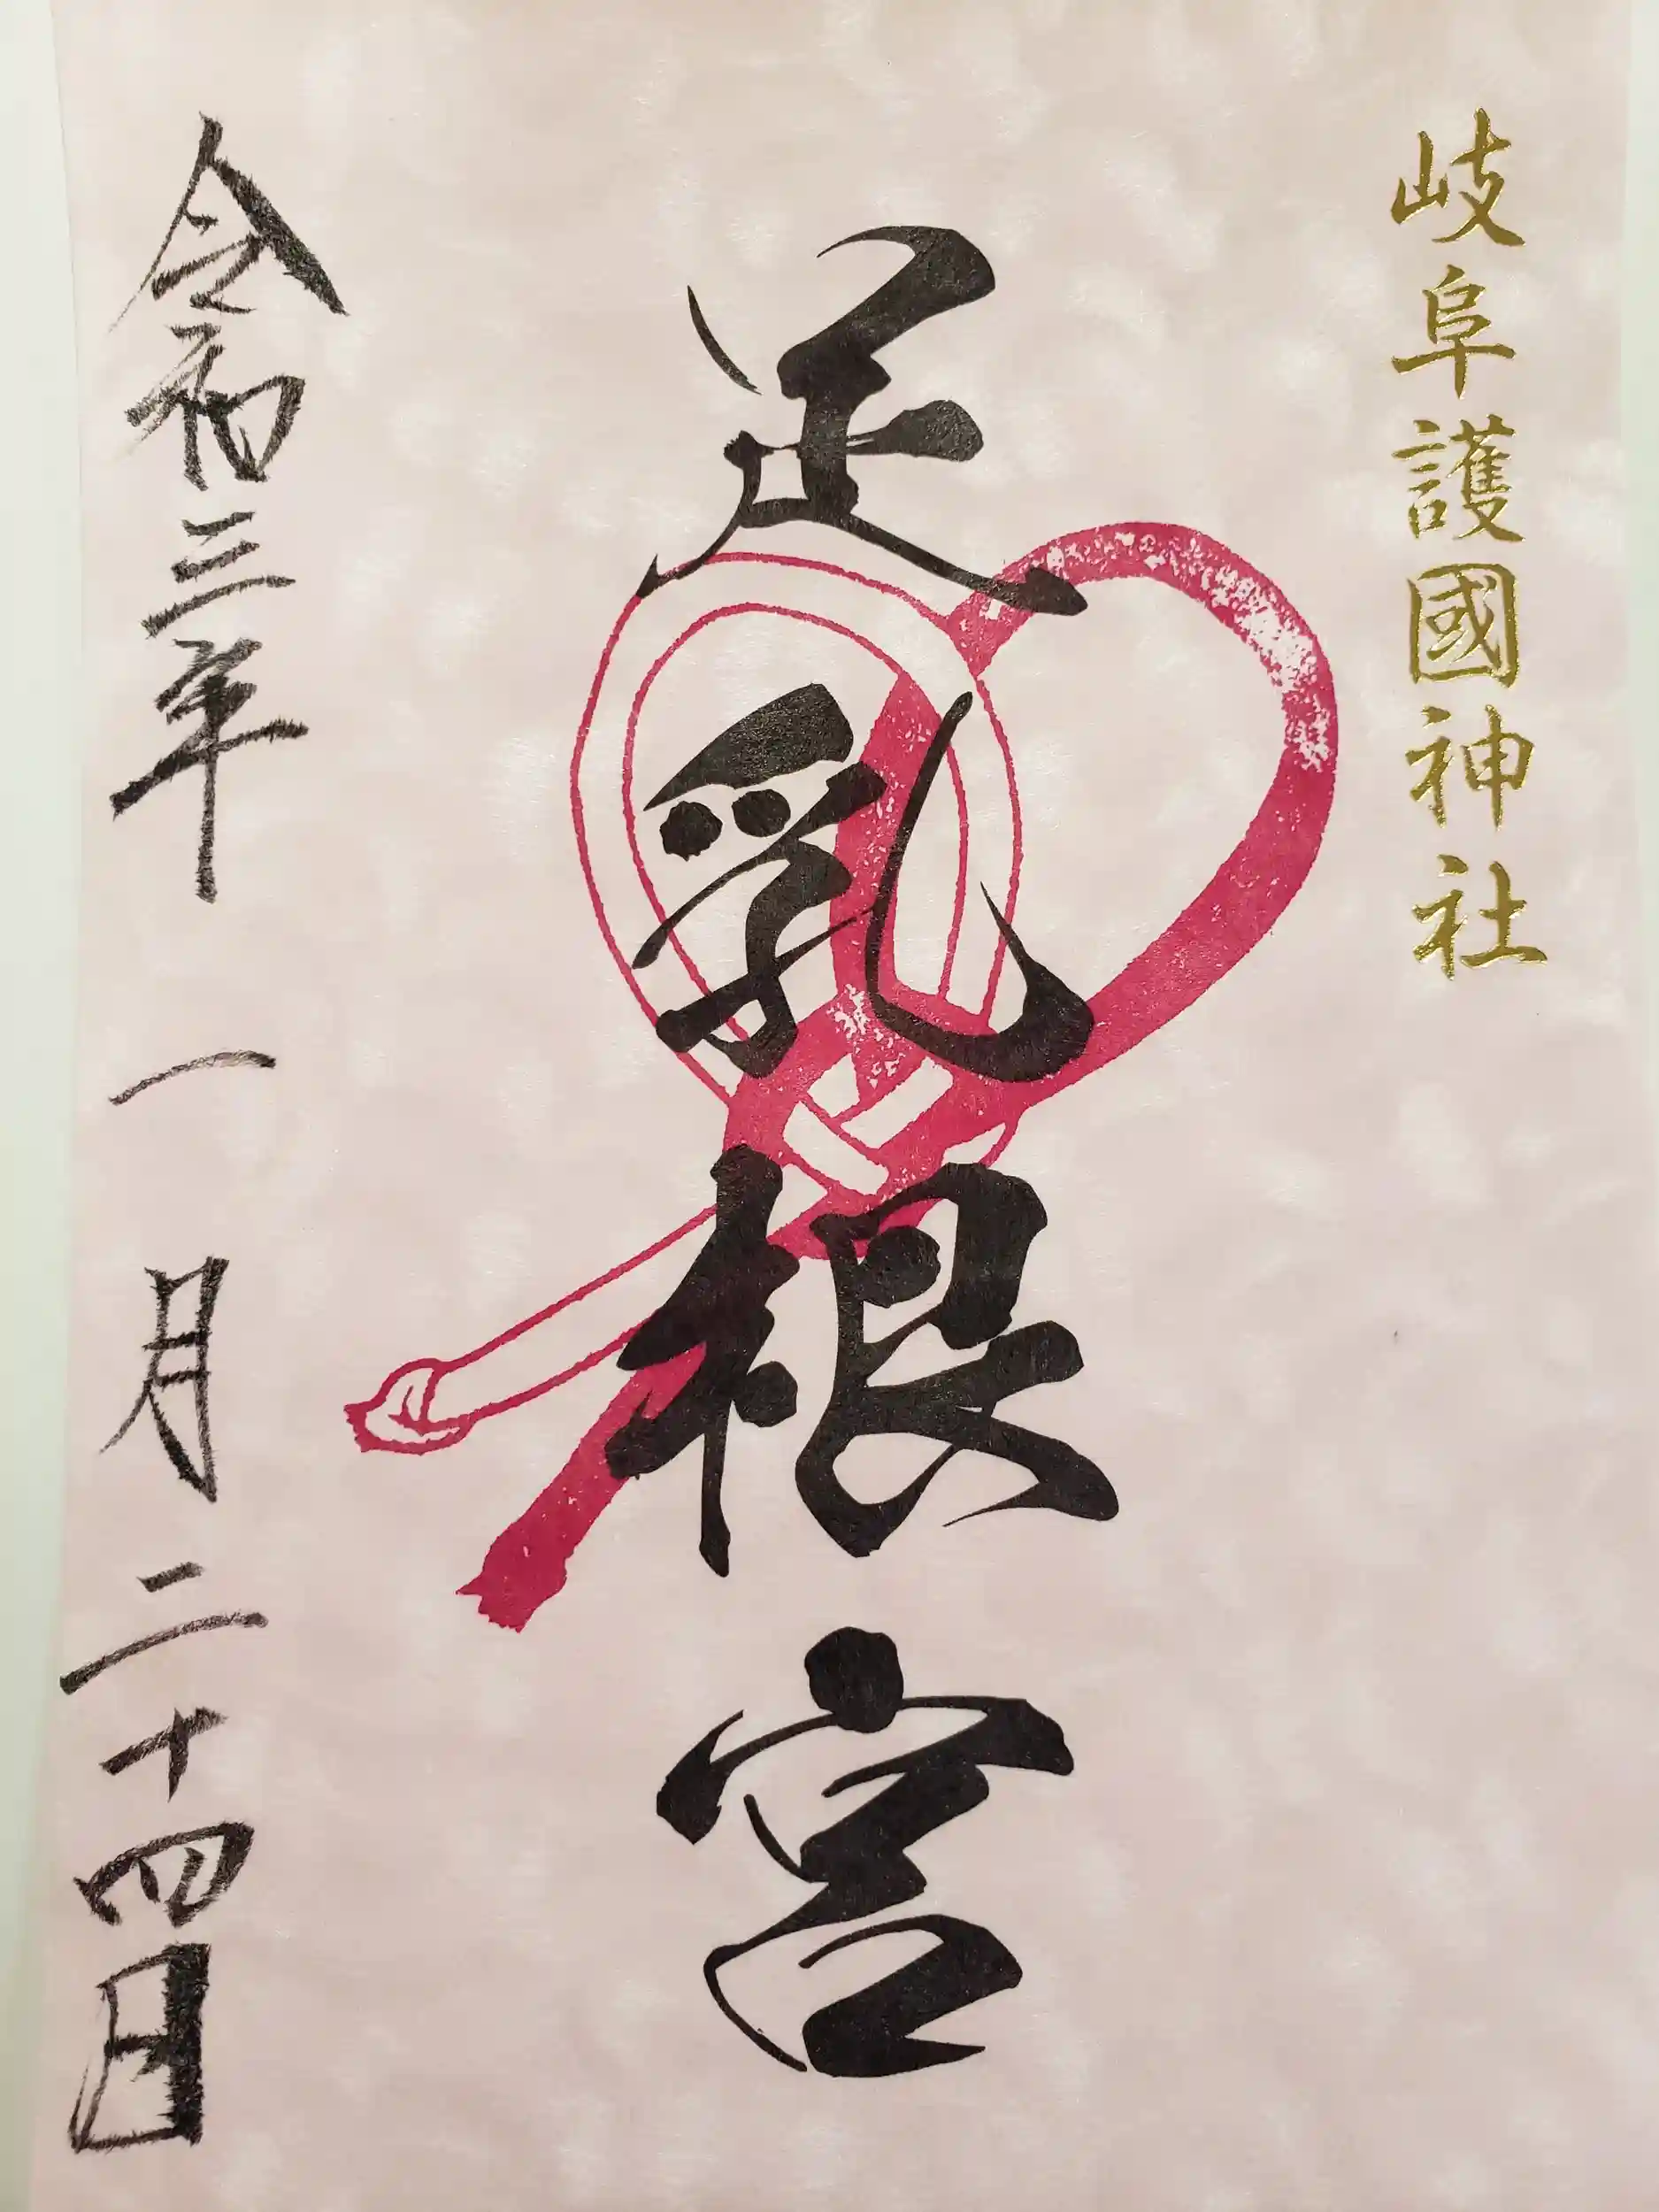 岐阜護國神社
足乳根宮
令和三年 一月二十四日